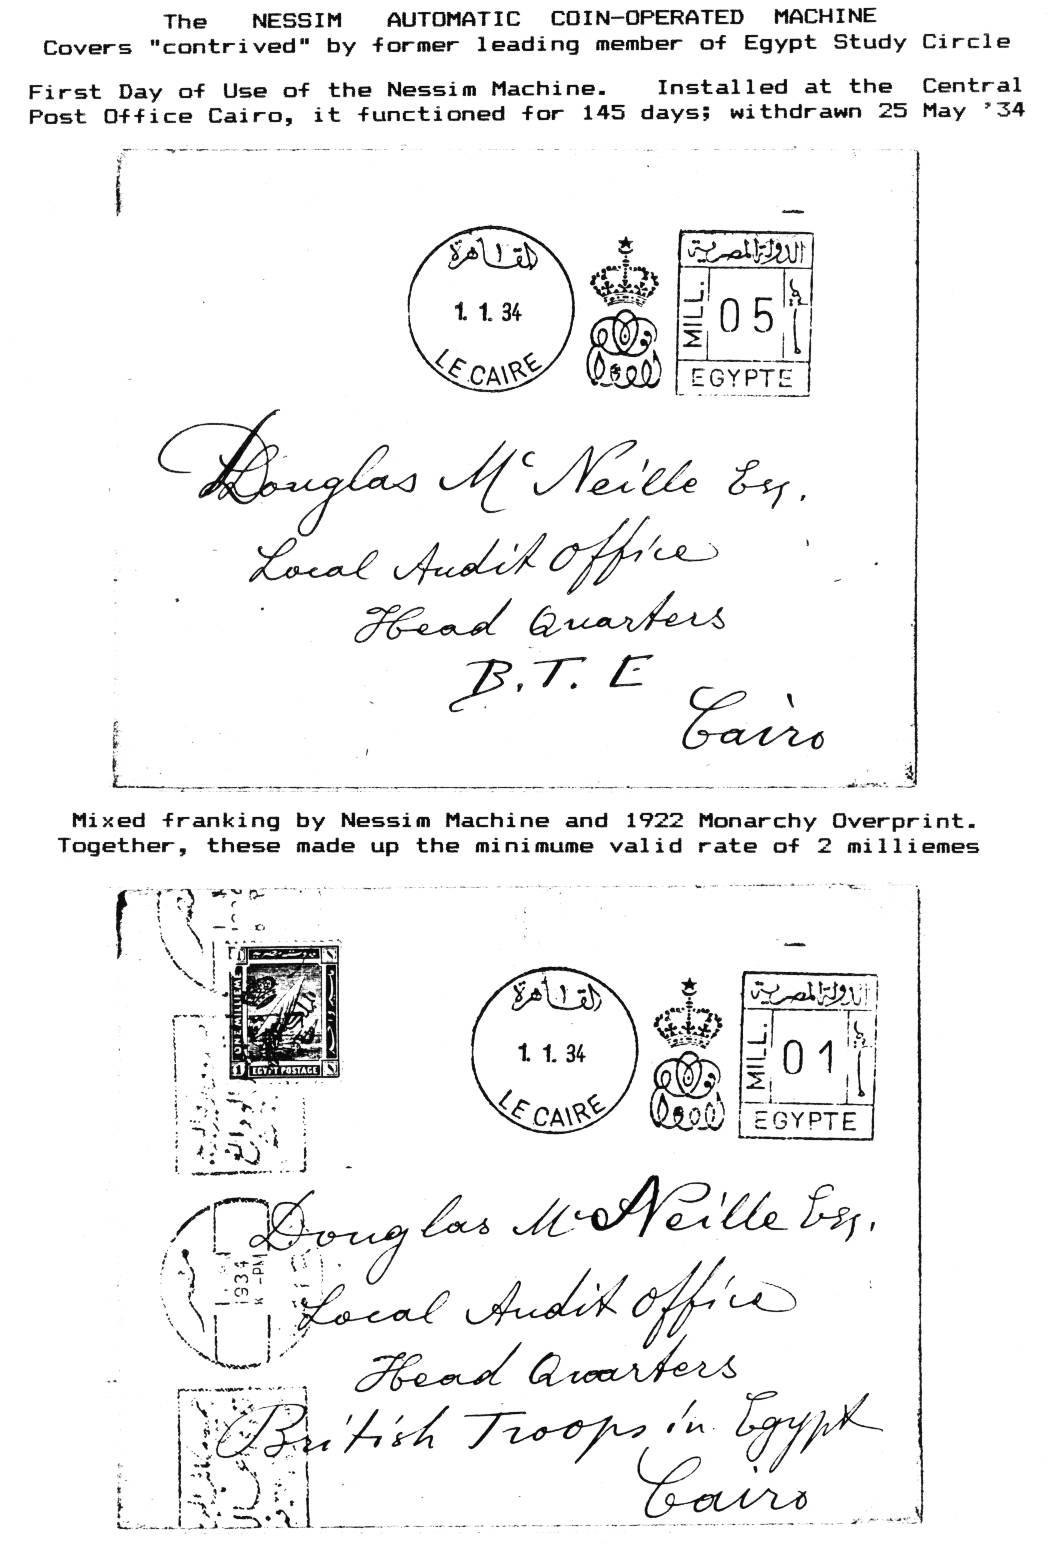 The NESSIM AUTOMATIC COIN-OPERATED MACHINE
Covers "contrived" by former leading member of Egypt Study Circle
First Day of Use of the Nessim Machine. Installed at the Central
Post Office Cairo, it functioned for 145 days; withdrawn 25 May '34
القاهرة
1. 1. 34
LE CAIRE
الدولة المصرية
MILL. 05
EGYPTE
Douglas McNeille Esq.
Local Audit Office
Head Quarters
B.T.E
Cairo
Mixed franking by Nessim Machine and 1922 Monarchy Overprint.
Together, these made up the minimume valid rate of 2 milliemes
ONE MILLIEME
1 EGYPT POSTAGE
القاهرة
1. 1. 34
LE CAIRE
الدولة المصرية
MILL. 01
EGYPTE
1934
-PM
Douglas McNeille Esq.
Local Audit Office
Head Quarters
British Troops in Egypt
Cairo